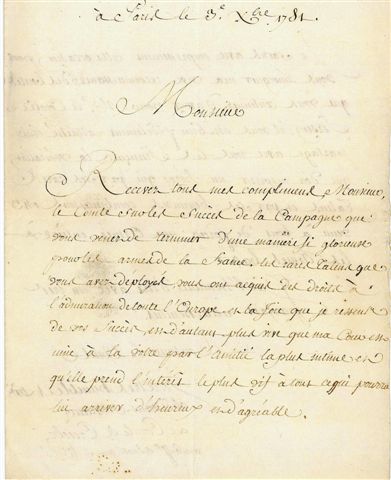 à Paris le 3e Xbre 1781.
Monsieur
Recevez tous mes complimens Monsieur
le Comte sur les succès de la Campagne que
vous venez de terminer d'une manière si glorieuse
pour les armes de la France, les rares talens que
vous avez deployés vous ont acquis des droits à
l'admiration de toute l'Europe et la joie que je ressens
de vos succès, est d'autant plus vive que ma Cour est
unie à la votre par l'amitié la plus intime et
qu'elle prend l'intérêt le plus vif à tout ce qui pourra
lui arriver d'heureux et d'agréable.